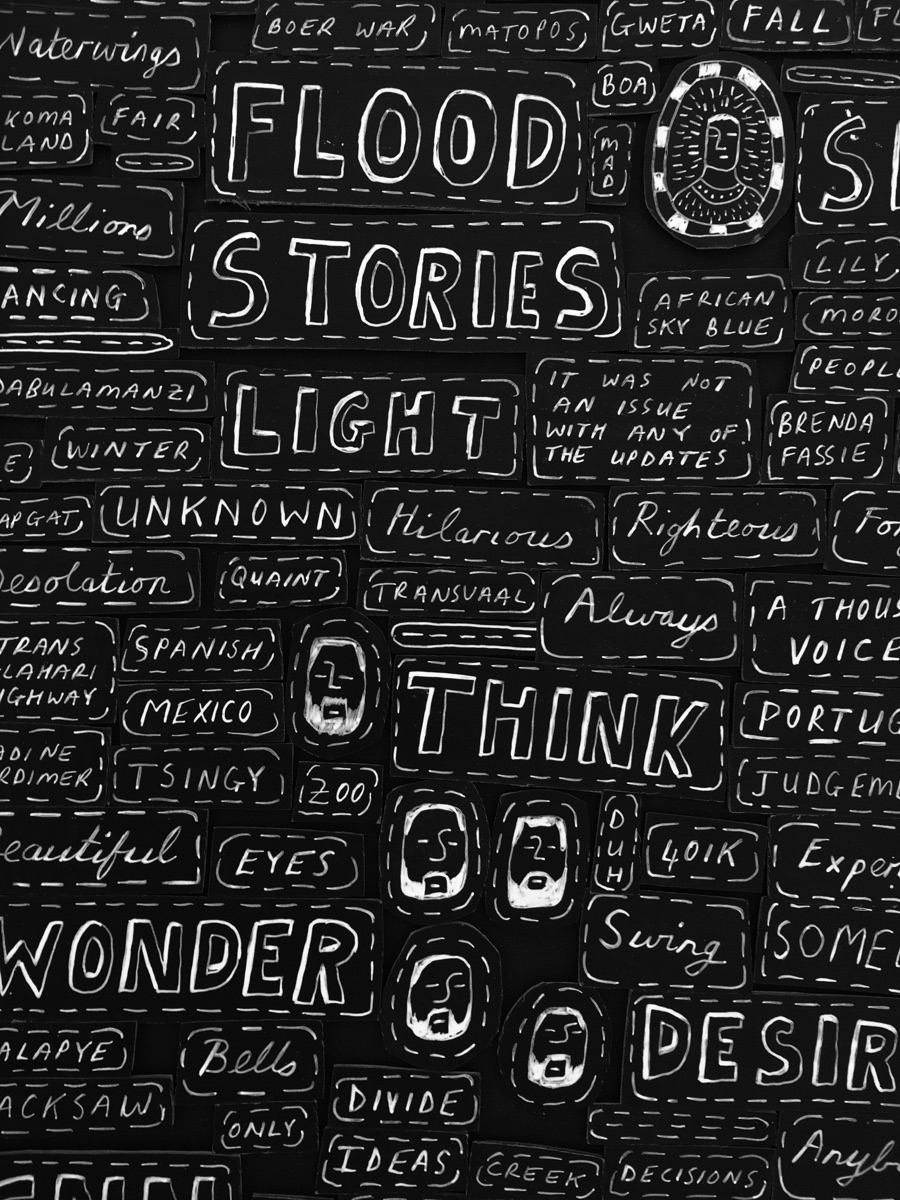 BOER WAR
MATOPOS
GWETA
FALL
Waterwings
FLOOD
BOA
KOMA
LAND
FAIR
MAD
Millions
STORIES
LILY
ANCING
AFRICAN
SKY BLUE
MORO
PEOPL
DABULAMANZI
LIGHT
IT WAS NOT
AN ISSUE
WITH ANY OF
THE UPDATES
BRENDA
FASSIE
E
WINTER
APGAT
UNKNOWN
Hilarious
Righteous
For
esolation
QUAINT
TRANSVAAL
Always
A THOUS
VOICE
TRANS
LAHARI
IGHWAY
SPANISH
MEXICO
THINK
PORTUG
ADINE
RDIMER
TSINGY
ZOO
JUDGEME
eautiful
EYES
DUH
401K
Exper
WONDER
Swing
SOME
DESIR
ALAPYE
Bells
ACKSAW
ONLY
DIVIDE
IDEAS
CREEK
DECISIONS
Anyb